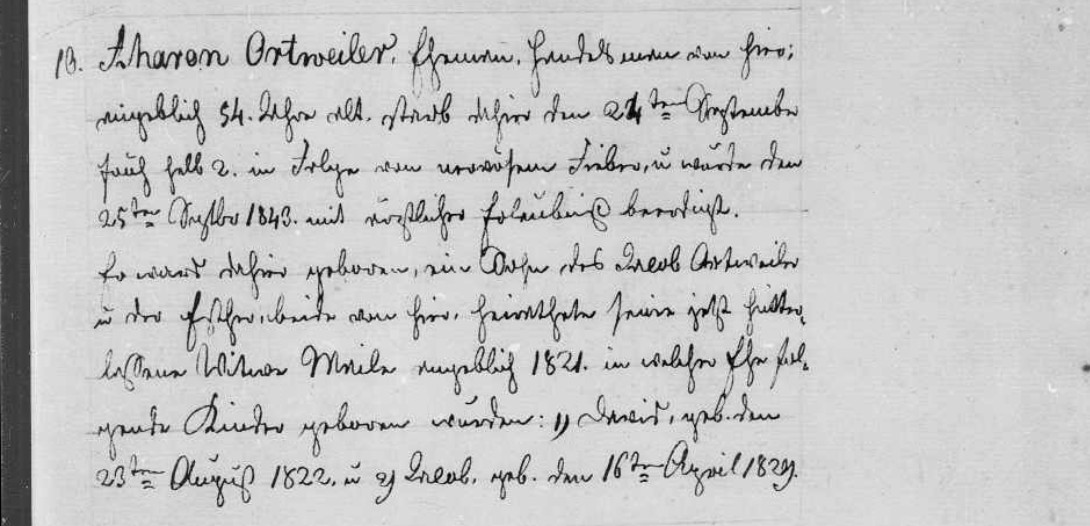 10. Aharon Ortweiler, Ehemann, Handelsmann von hier,
angeblich 54. Jahre alt. starb dahier den 24ten September
früh halb 2. in Folge von nervösem Fieber, u wurde den
25ten Septbr 1843. mit ärztlicher Erlaubniß beerdigt.
Er ward dahier geboren, ein Sohn des Jacob Ortweiler
u der Esther, beide von hier, heirathete seine jetzt hinter,
lassene Witwe Meile angeblich 1821. in welcher Ehe fol,
gende Kinder geboren wurden: 1) David, geb. den
23ten August 1822. u 2) Jacob, geb. den 16ten April 1829.